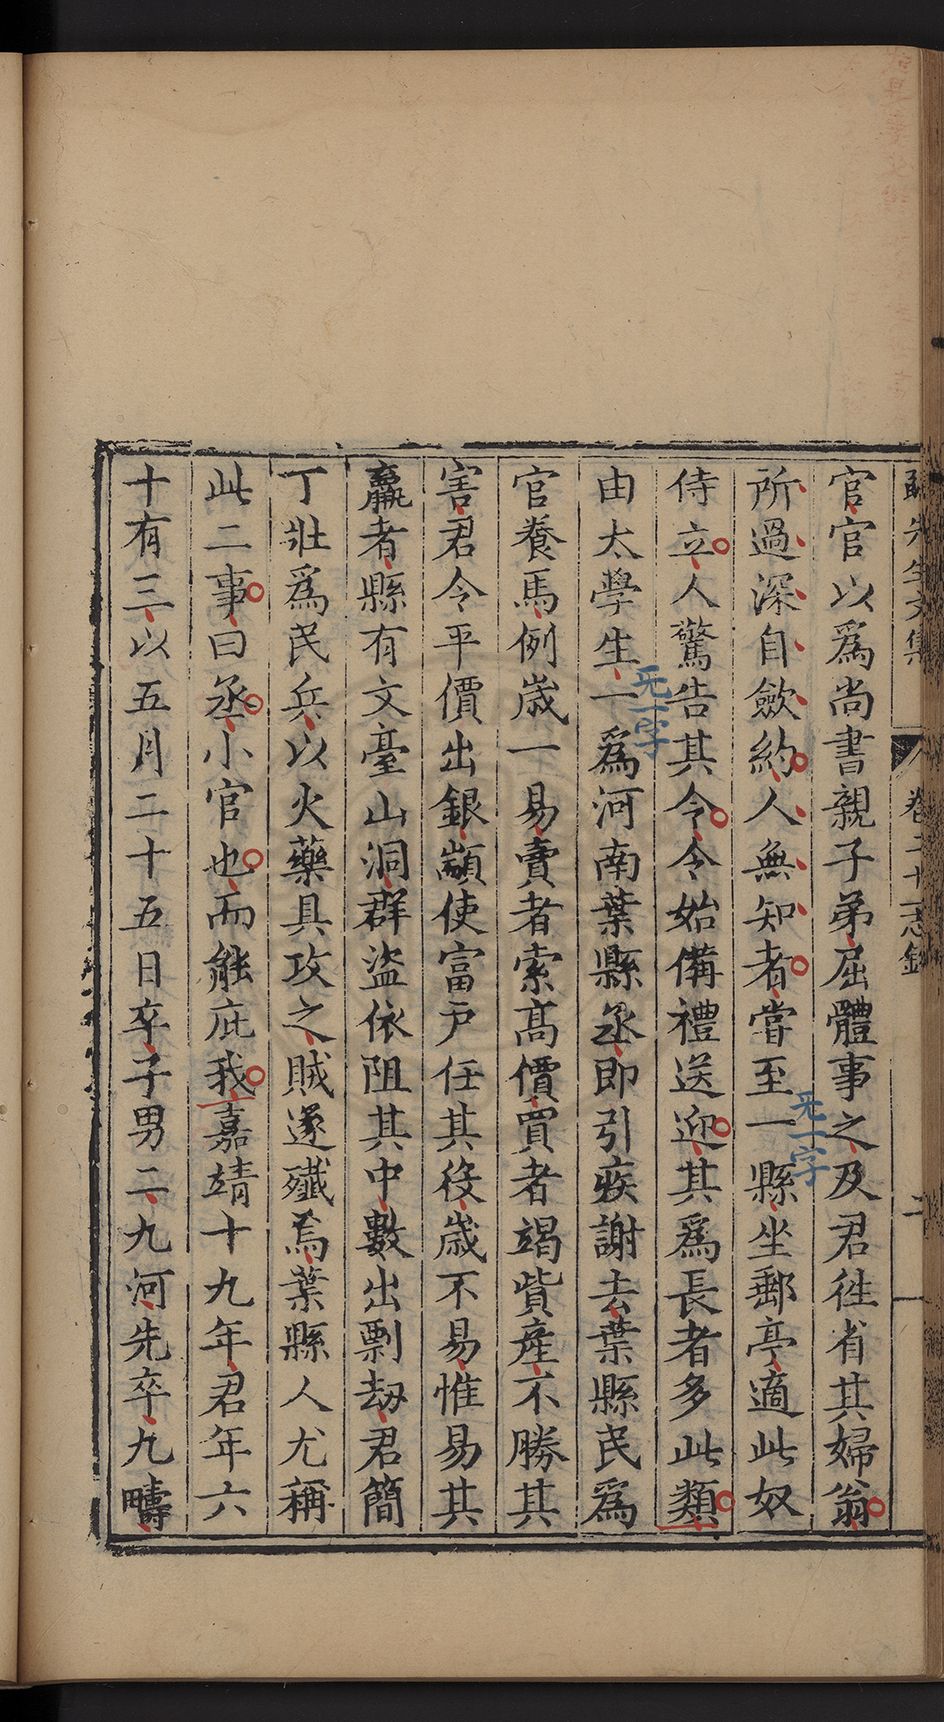 先生文集 卷二十 志錄 二
官官以爲尚書親子弟屈體事之及君徃省其婦翁
所過深自歛約人無知者嘗至一縣坐郵亭適此奴
无一字
侍立人驚告其令令始備禮送迎其爲長者多此類
由太學生一爲河南葉縣丞即引疾謝去葉縣民爲
无一字
官養馬例歲一易賣者索高價買者竭貲產不勝其
害君令平價出銀顓使富戶任其役歲不易惟易其
羸者縣有文臺山洞群盜依阻其中數出剽劫君簡
丁壯爲民兵以火藥具攻之賊遂殲焉葉縣人尤稱
此二事曰丞小官也而能庇我嘉靖十九年君年六
十有三以五月二十五日卒子男二九河先卒九疇